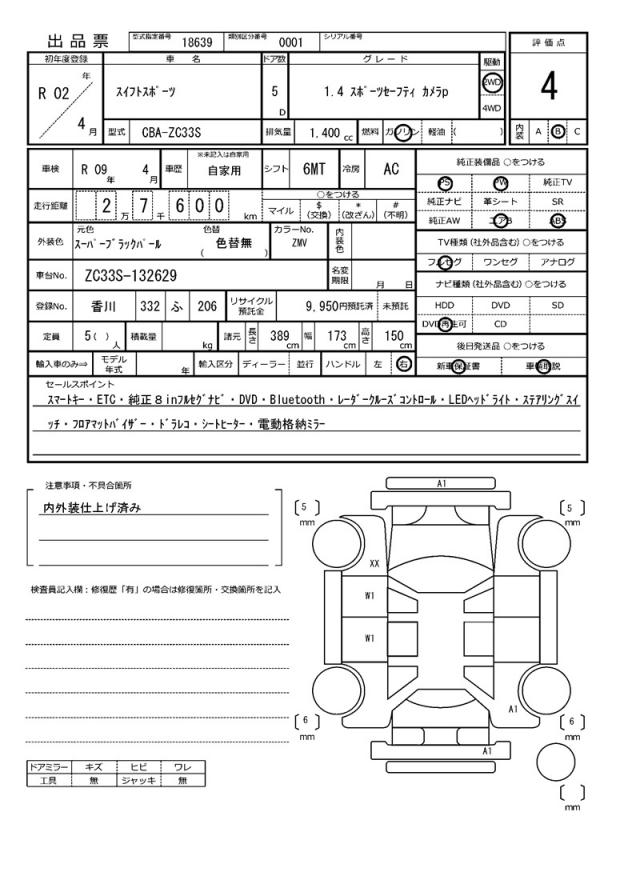 出品票 型式指定番号 18639 類別区分番号 0001 シリアル番号
初年度登録 車名 ドア数 グレード 駆動 評価点
R 02 年 4 月 スイフトスポーツ 5 D 1.4 スポーツセーフティ カメラp 2WD 4WD 4
型式 CBA-ZC33S 排気量 1,400 cc 燃料 ガソリン 軽油 ( ) 内装 A B C
車検 R 09 年 4 月 車歴 ※未記入は自家用 自家用 シフト 6MT 冷房 AC
走行距離 2 万 7 千 6 0 0 km ○をつける
マイル $ (交換) * (改ざん) # (不明)
外装色 元色 スーパーブラックパール 色替 ( 色替無 ) カラーNo. ZMV 内装色
車台No. ZC33S-132629 名変期限 月 日
登録No. 香川 332 ふ 206 リサイクル預託金 9,950円預託済 未預託
定員 5( ) 人 積載量 kg 諸元 長さ 389 cm 幅 173 cm 高さ 150 cm
輸入車のみ⇒ モデル年式 年 輸入区分 ディーラー 並行 ハンドル 左 右
純正装備品 ○をつける
PS PW 純正TV
純正ナビ 革シート SR
純正AW エアB ABS
TV種類(社外品含む)○をつける
フルセグ ワンセグ アナログ
ナビ種類(社外品含む)○をつける
HDD DVD SD
DVD再生可 CD
後日発送品 ○をつける
新車保証書 車輌取説
セールスポイント
スマートキー・ETC・純正８inフルセグナビ・DVD・Bluetooth・レーダークルーズコントロール・LEDヘッドライト・ステアリングスイ
ッチ・フロアマットバイザー・ドラレコ・シートヒーター・電動格納ミラー
注意事項・不具合箇所
内外装仕上げ済み
検査員記入欄：修復歴「有」の場合は修復箇所・交換箇所を記入
ドアミラー キズ ヒビ ワレ
工具 無 ジャッキ 無
A1
5 mm 5 mm
XX
W1
W1
A1
6 mm 6 mm
A1
mm